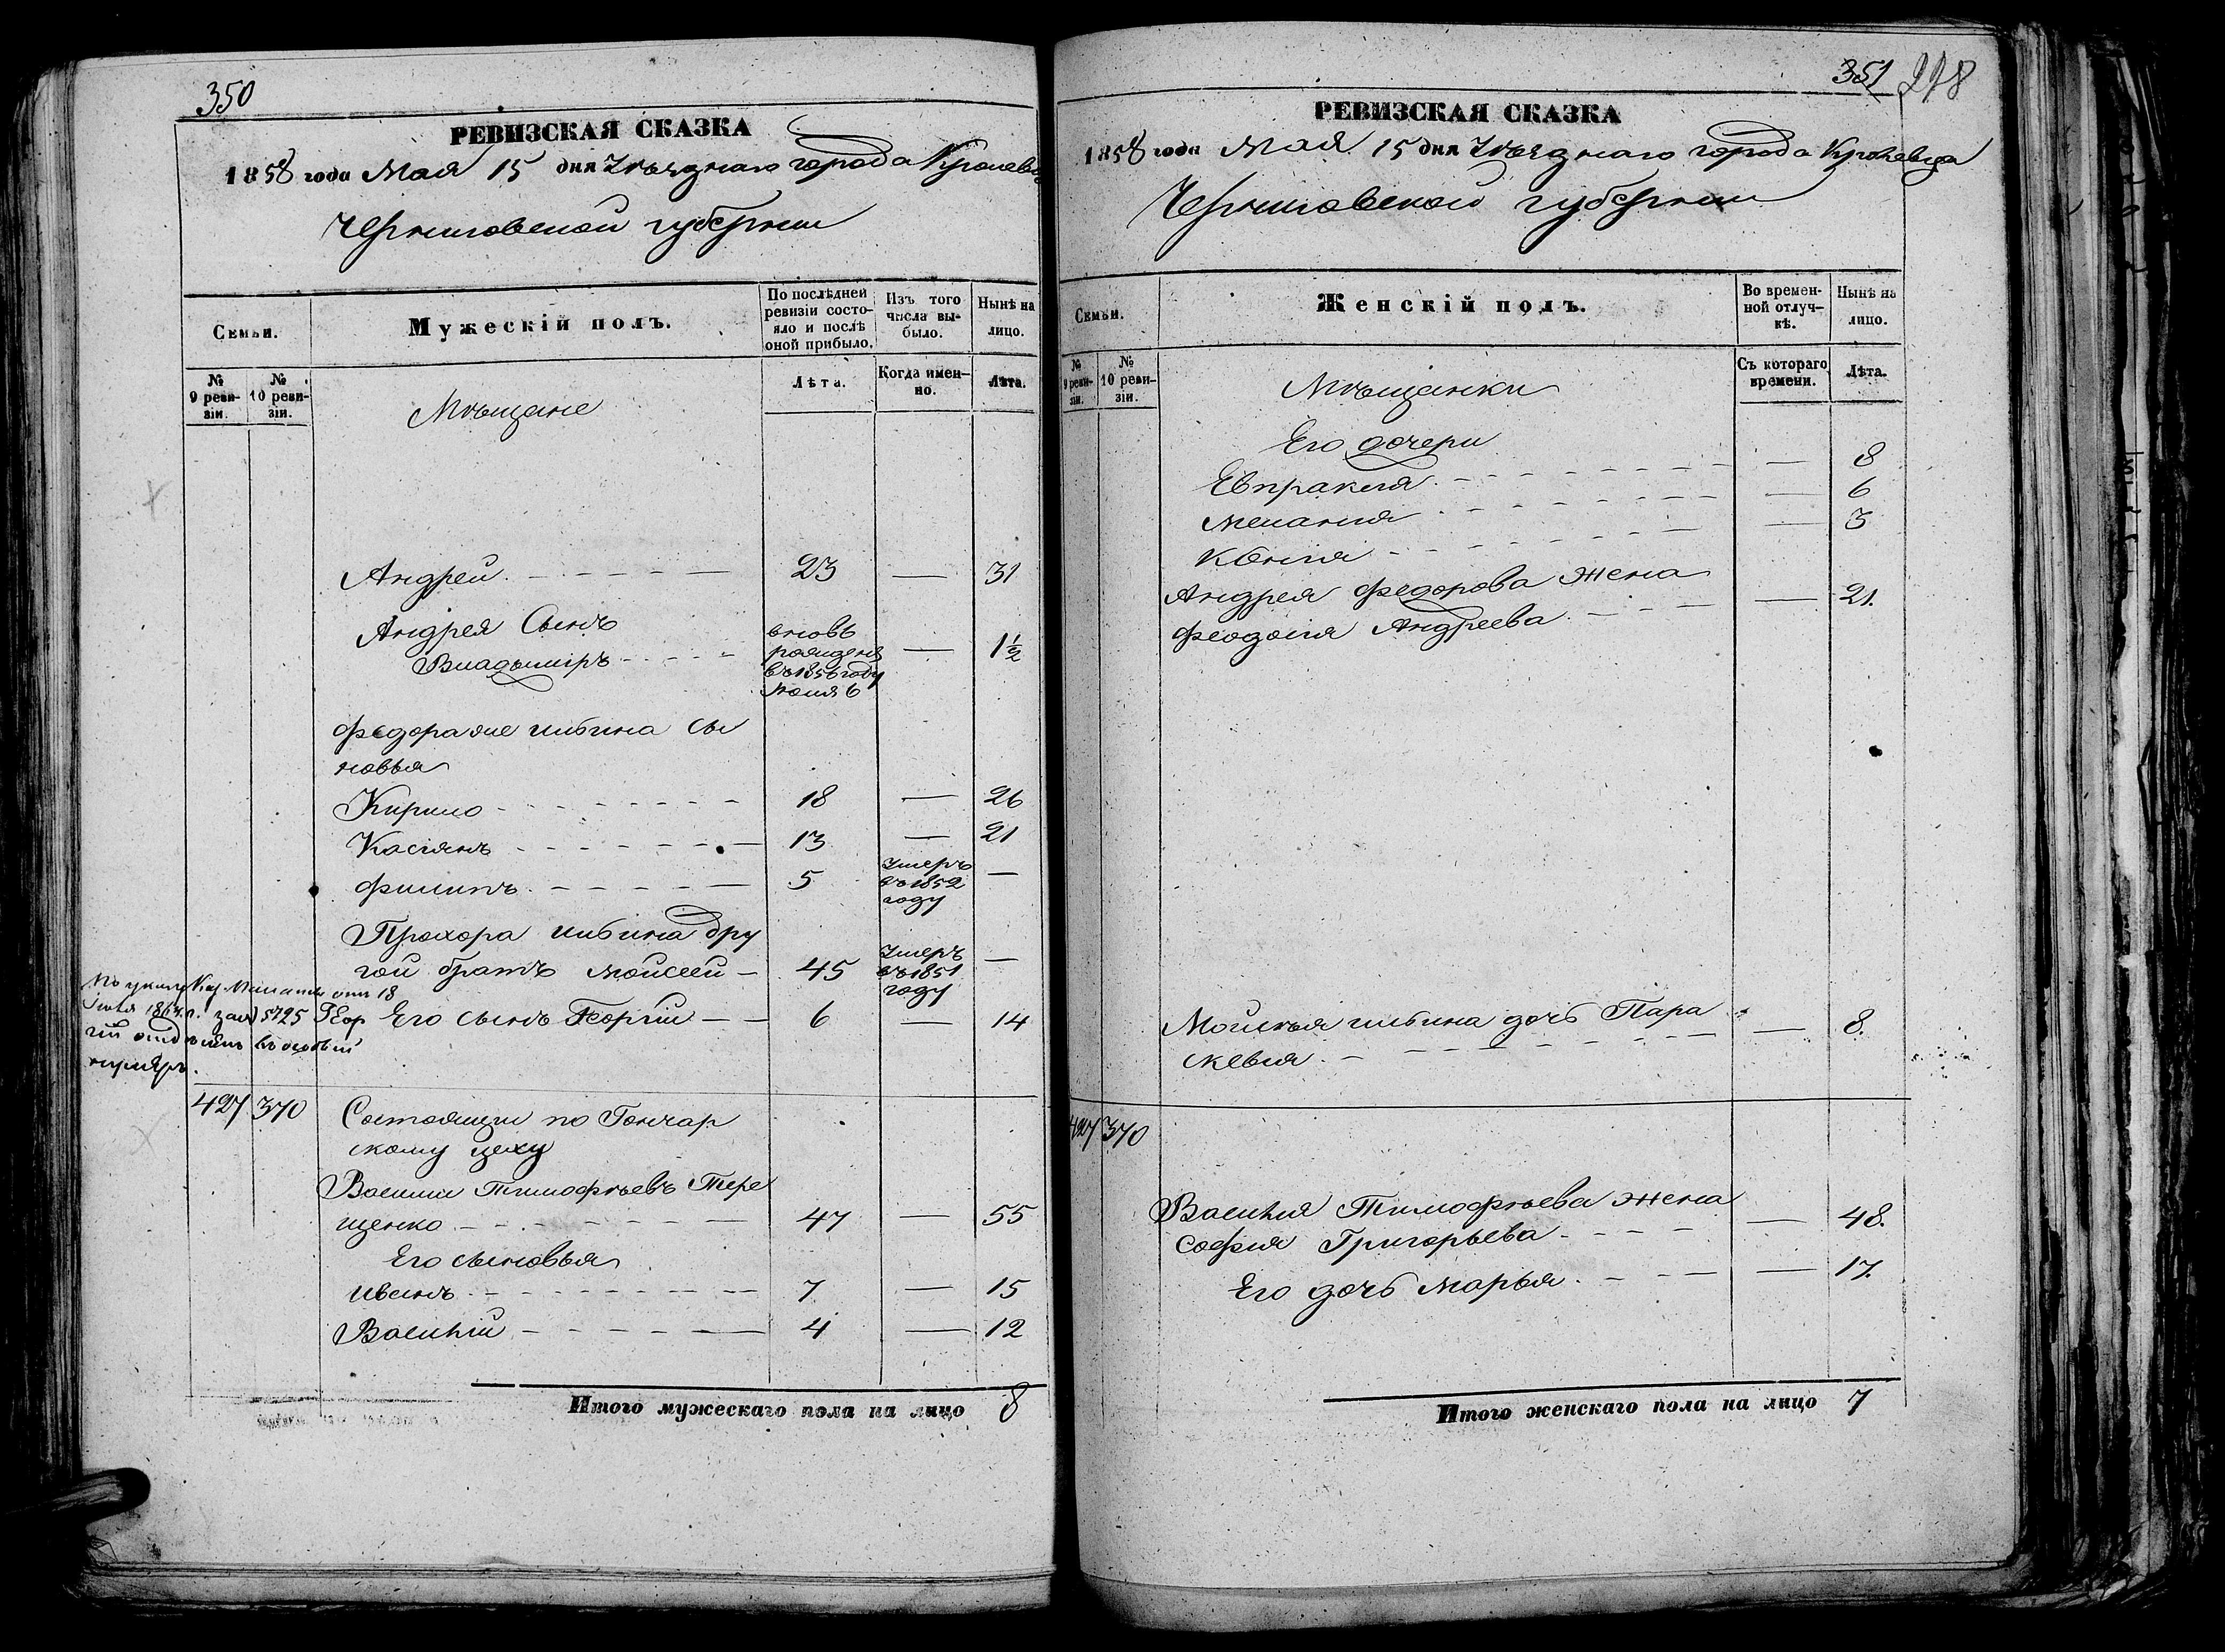 350
РЕВИЗСКАЯ СКАЗКА
1858 года Мая 15 дня Уѣзднаго города Кролевца
Черниговской губерніи
Семьи.
Мужескій полъ.
По послѣдней ревизіи состояло и послѣ оной прибыло.
Изъ того числа выбыло.
Нынѣ на лицо.
№ 9 ревизіи.
№ 10 ревизіи.
Лѣта.
Когда именно.
Лѣта.
Мѣщане
Андрей 23 — 31
Андрея Сынъ
Владыміръ вновь рожденъ въ 1856 году — 1½
Федора сы
новья
Кирило 18 — 26
Касіянъ 13 — 21
Филипъ 5 Умеръ въ 1852 году —
Прохора дру
гой братъ Моисей 45 Умеръ въ 1851 году —
По указу Каз. Палаты отъ 18
5725 Геор
гій отдѣленъ въ особый
нумеръ.
Его сынъ Георгій 6 — 14
427 370 Состоящіи по Гончар
скому цеху
Василій Тимофѣевъ Тере
щенко 47 — 55
Его сыновья
Иванъ 7 — 15
Василій 4 — 12
Итого мужескаго пола на лицо 8
351 278
РЕВИЗСКАЯ СКАЗКА
1858 года Мая 15 дня Уѣзднаго города Кролевца
Черниговской губерніи
Семьи.
Женскій полъ.
Во временной отлучкѣ.
Нынѣ на лицо.
№ 9 ревизіи.
№ 10 ревизіи.
Съ котораго времени.
Лѣта.
Мѣщанки
Его дочери
Евпраксія — 8
Меланія — 6
Ксенія — 3
Андрея Федорова жена
Феодосія Андреева — 21.
Моисѣя дочь Пара
скевія — 8.
427 370
Василія Тимофѣева жена
Софія Григорьева — 48.
Его дочь Марья — 17.
Итого женскаго пола на лицо 7